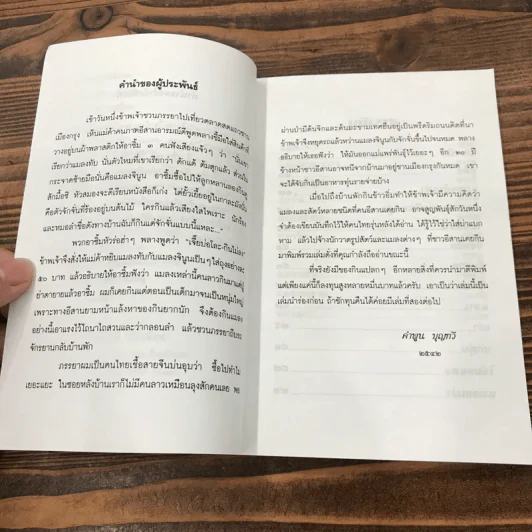 คำนำของผู้ประพันธ์
เช้าวันหนึ่งข้าพเจ้าชวนภรรยาไปเที่ยวตลาดสดแถวชาน
เมืองกรุง เห็นแม่ค้าคนภาคอีสานอารมณ์ดีพูดพลางชี้มือใส่สินค้าที่
วางอยู่บนผ้าพลาสติกให้อาซิ้ม ๓ คนฟังเสียงแจ้วๆ ว่า
เรียกว่าแมลงทับ นั่นตัวไหมที่เขาเรียกว่า ดักแด้ ต้มสุกแล้ว ส่วนใน
กระจาดซ้ายมือนั่นคือแมลงจินูน อาซิ้มซื้อไปให้ลูกหลานลองกิน
สักมื้อซิ หัวสมองจะดีเรียนหนังสือก็เก่ง
คือตัวจักจั่นที่ร้องอยู่บนต้นไม้ ใครกินแล้วเสียงใสไพเราะ นักร้อง
และหมอลำชื่อดังทางบ้านฉันก็กินแต่จักจั่นแบบนี้แหละ...”
พวกอาซิ้มหัวร่อฮ่าๆ พลางพูดว่า
ข้าพเจ้าจึงสั่งให้แม่ค้าหยิบแมลงทับกับแมลงจินูนเป็นๆ ใส่ถุงอย่างละ
๕๐ บาท แล้วอธิบายให้อาซิ้มฟังว่า แมลงเหล่านี้คนลาวกินมาแต่ปู่
ย่าตายายแล้วอาซิ้ม ผมก็เคยกินแต่ตอนเป็นเด็กมาจนเป็นหนุ่มใหญ่
เพราะทางอีสานยามหน้าแล้งหาของกินยากนัก จึงต้องกินแมลง
อย่างนี้เอาแรงไว้ไถนาไถสวนและว่ากลอนลำ แล้วชวนภรรยาถีบรถ
จักรยานกลับบ้านพัก
ภรรยาผมเป็นคนไทยเชื้อสายจีนบ่นอุบว่า ซื้อไปทำไม
เยอะแยะ ในซอยหลังบ้านเราก็ไม่มีคนลาวเหมือนลุงสักคนเลย พอ
ผ่านป่ามีต้นจิกและต้นมะขามเทศยืนอยู่เป็นพรืดริมถนนติดที่นา
ข้าพเจ้าจึงหยุดรถแล้วหว่านแมลงจินูนกับจักจั่นขึ้นไปจนหมด พลาง
อธิบายให้เธอฟังว่า ให้มันออกแม่แพร่พันธุ์ไว้เยอะๆ อีก ๒๐ ปี
ข้างหน้าชาวอีสานอาจหนีจากบ้านมาอยู่ชานเมืองกรุงกันหมด เขา
จะได้จับกินเป็นอาหารทุ่นรายจ่ายบ้าง
เมื่อไปถึงบ้านพักกินข้าวอิ่มทำให้ข้าพเจ้ามีความคิดว่า
แมลงและสัตว์หลายชนิดที่คนอีสานเคยกิน อาจสูญพันธุ์สักวันหนึ่ง
จำต้องเขียนบันทึกไว้ให้คนไทยรุ่นหลังได้อ่าน ได้รู้ไว้ใช่ว่าใส่บ่าแบก
หาม แล้วไปจ้างนักวาดรูปสัตว์และแมลงต่างๆ ที่ชาวอีสานเคยกิน
มาพิมพ์รวมเล่มดังที่คุณกำลังถืออ่านขณะนี้
ที่จริงยังมีของกินแปลกๆ อีกหลายสิ่งที่ควรนำมาตีพิมพ์
แต่เพียงแค่นี้ก็ลงทุนสูงหลายหมื่นบาทแล้วครับ เอาเป็นว่าเล่มนี้เป็น
เล่มนำร่องก่อน ถ้าชักทุนคืนได้ค่อยมีเล่มที่สองต่อไป
คำพูน บุญทวี
๒๕๔๒